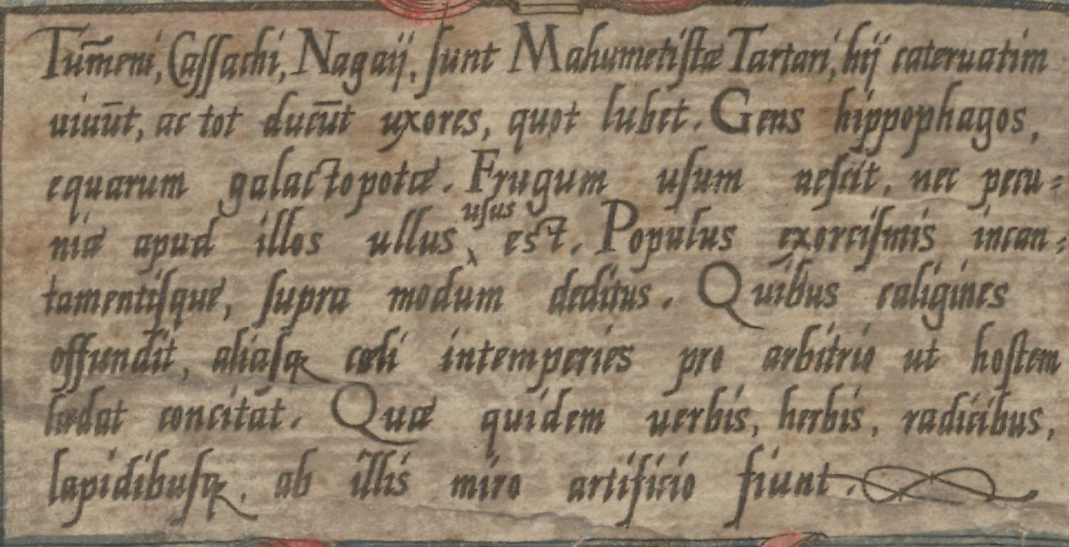 Tūm̄eni, Cassachi, Nagaij, sunt Mahumetistæ Tartari, hij cateruatim
uiuūt, ac tot ducūt uxores, quot lubet. Gens hippophagos,
equarum galactopotæ. Frugum usum nescit, nec pecu=
niæ apud illos ullus usus est. Populus exorcismis incan=
tamentisque, supra modum deditus. Quibus caligines
offundit, aliasq cœli intemperies pro arbitrio ut hostem
lædat concitat. Quæ quidem uerbis, herbis, radicibus,
lapidibusq, ab illis miro artificio fiunt.